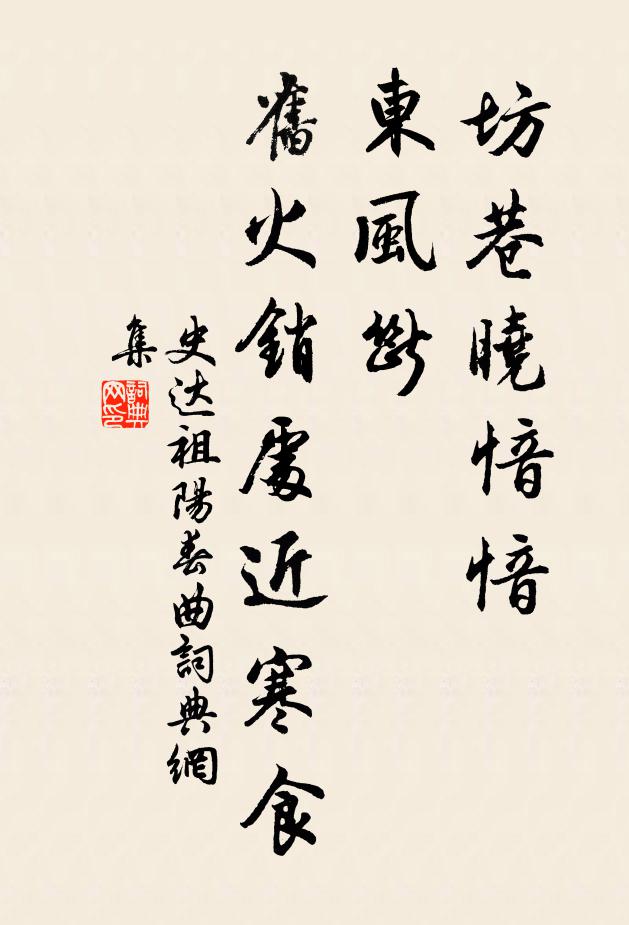 坊巷曉愔愔
東風斷
舊火銷處近寒食
史达祖陽春曲詞典網
集
詞典網印